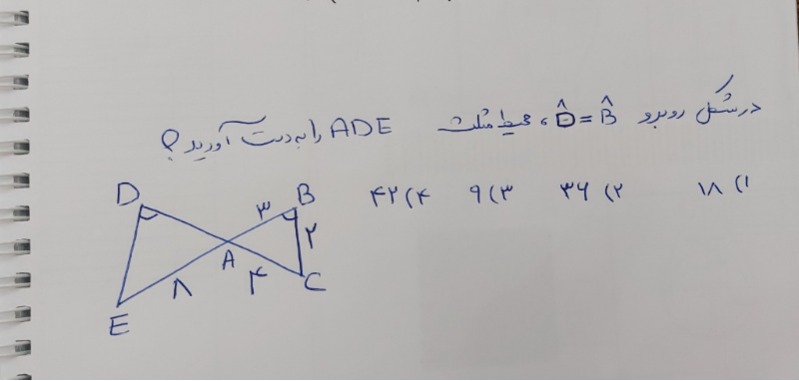 در شکل روبرو B̂ = D̂ ، محیط مثلث ADE را به دست آورید؟
۱) ۱۸ ۲) ۳۶ ۳) ۹ ۴) ۴۲
D B
۳
۲
A
۸ ۴ C
E